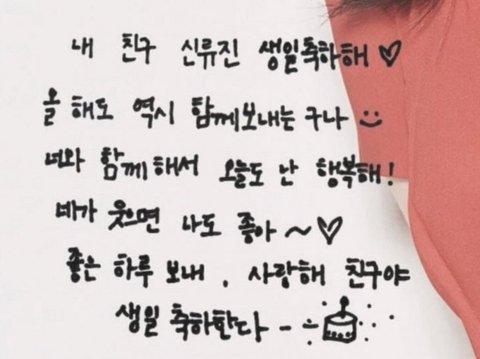 내 친구 신류진 생일축하해 ♡
올 해도 역시 함께보내는구나 :)
너와 함께해서 오늘도 난 행복해!
네가 웃으면 나도 좋아 ~ ♡
좋은 하루 보내 , 사랑해 친구야
생일 축하한다 - -